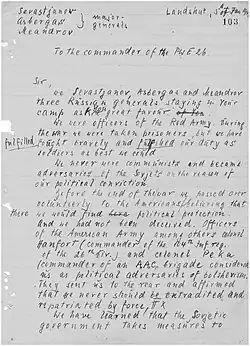 Sevastjanov
Asbergas
Meandrov
major-
generals
Landshut,
103
To the commander of the PWE 26.
Sir,
we Sevastjanov, Asbergas and Meandrov
three Russian generals staying in Your
camp ask You great favour
We were officers of the Red Army. During
the war we were taken prisoners, but we have
fulfilled
fought bravely and our duty as
soldiers as best we could.
We never were communists and became
adversaries of the Soviets on the reason of
our political conviction.
Before the end of the war we passed over
voluntarily to the Americans believing that
there we would find political protection.
And we had not been deceived. Officers
of the American Army among others colonel
Hanfort (commander of the 104th inf. reg.
of the 26th div.) and colonel Peka
(commander of an AAC brigade) consider
us as political adversaries of bolshevism.
They sent us to the rear and affirmed
that we never should be extradited and
repatriated by force.
We have learned that the Sovjetic
government takes measures to